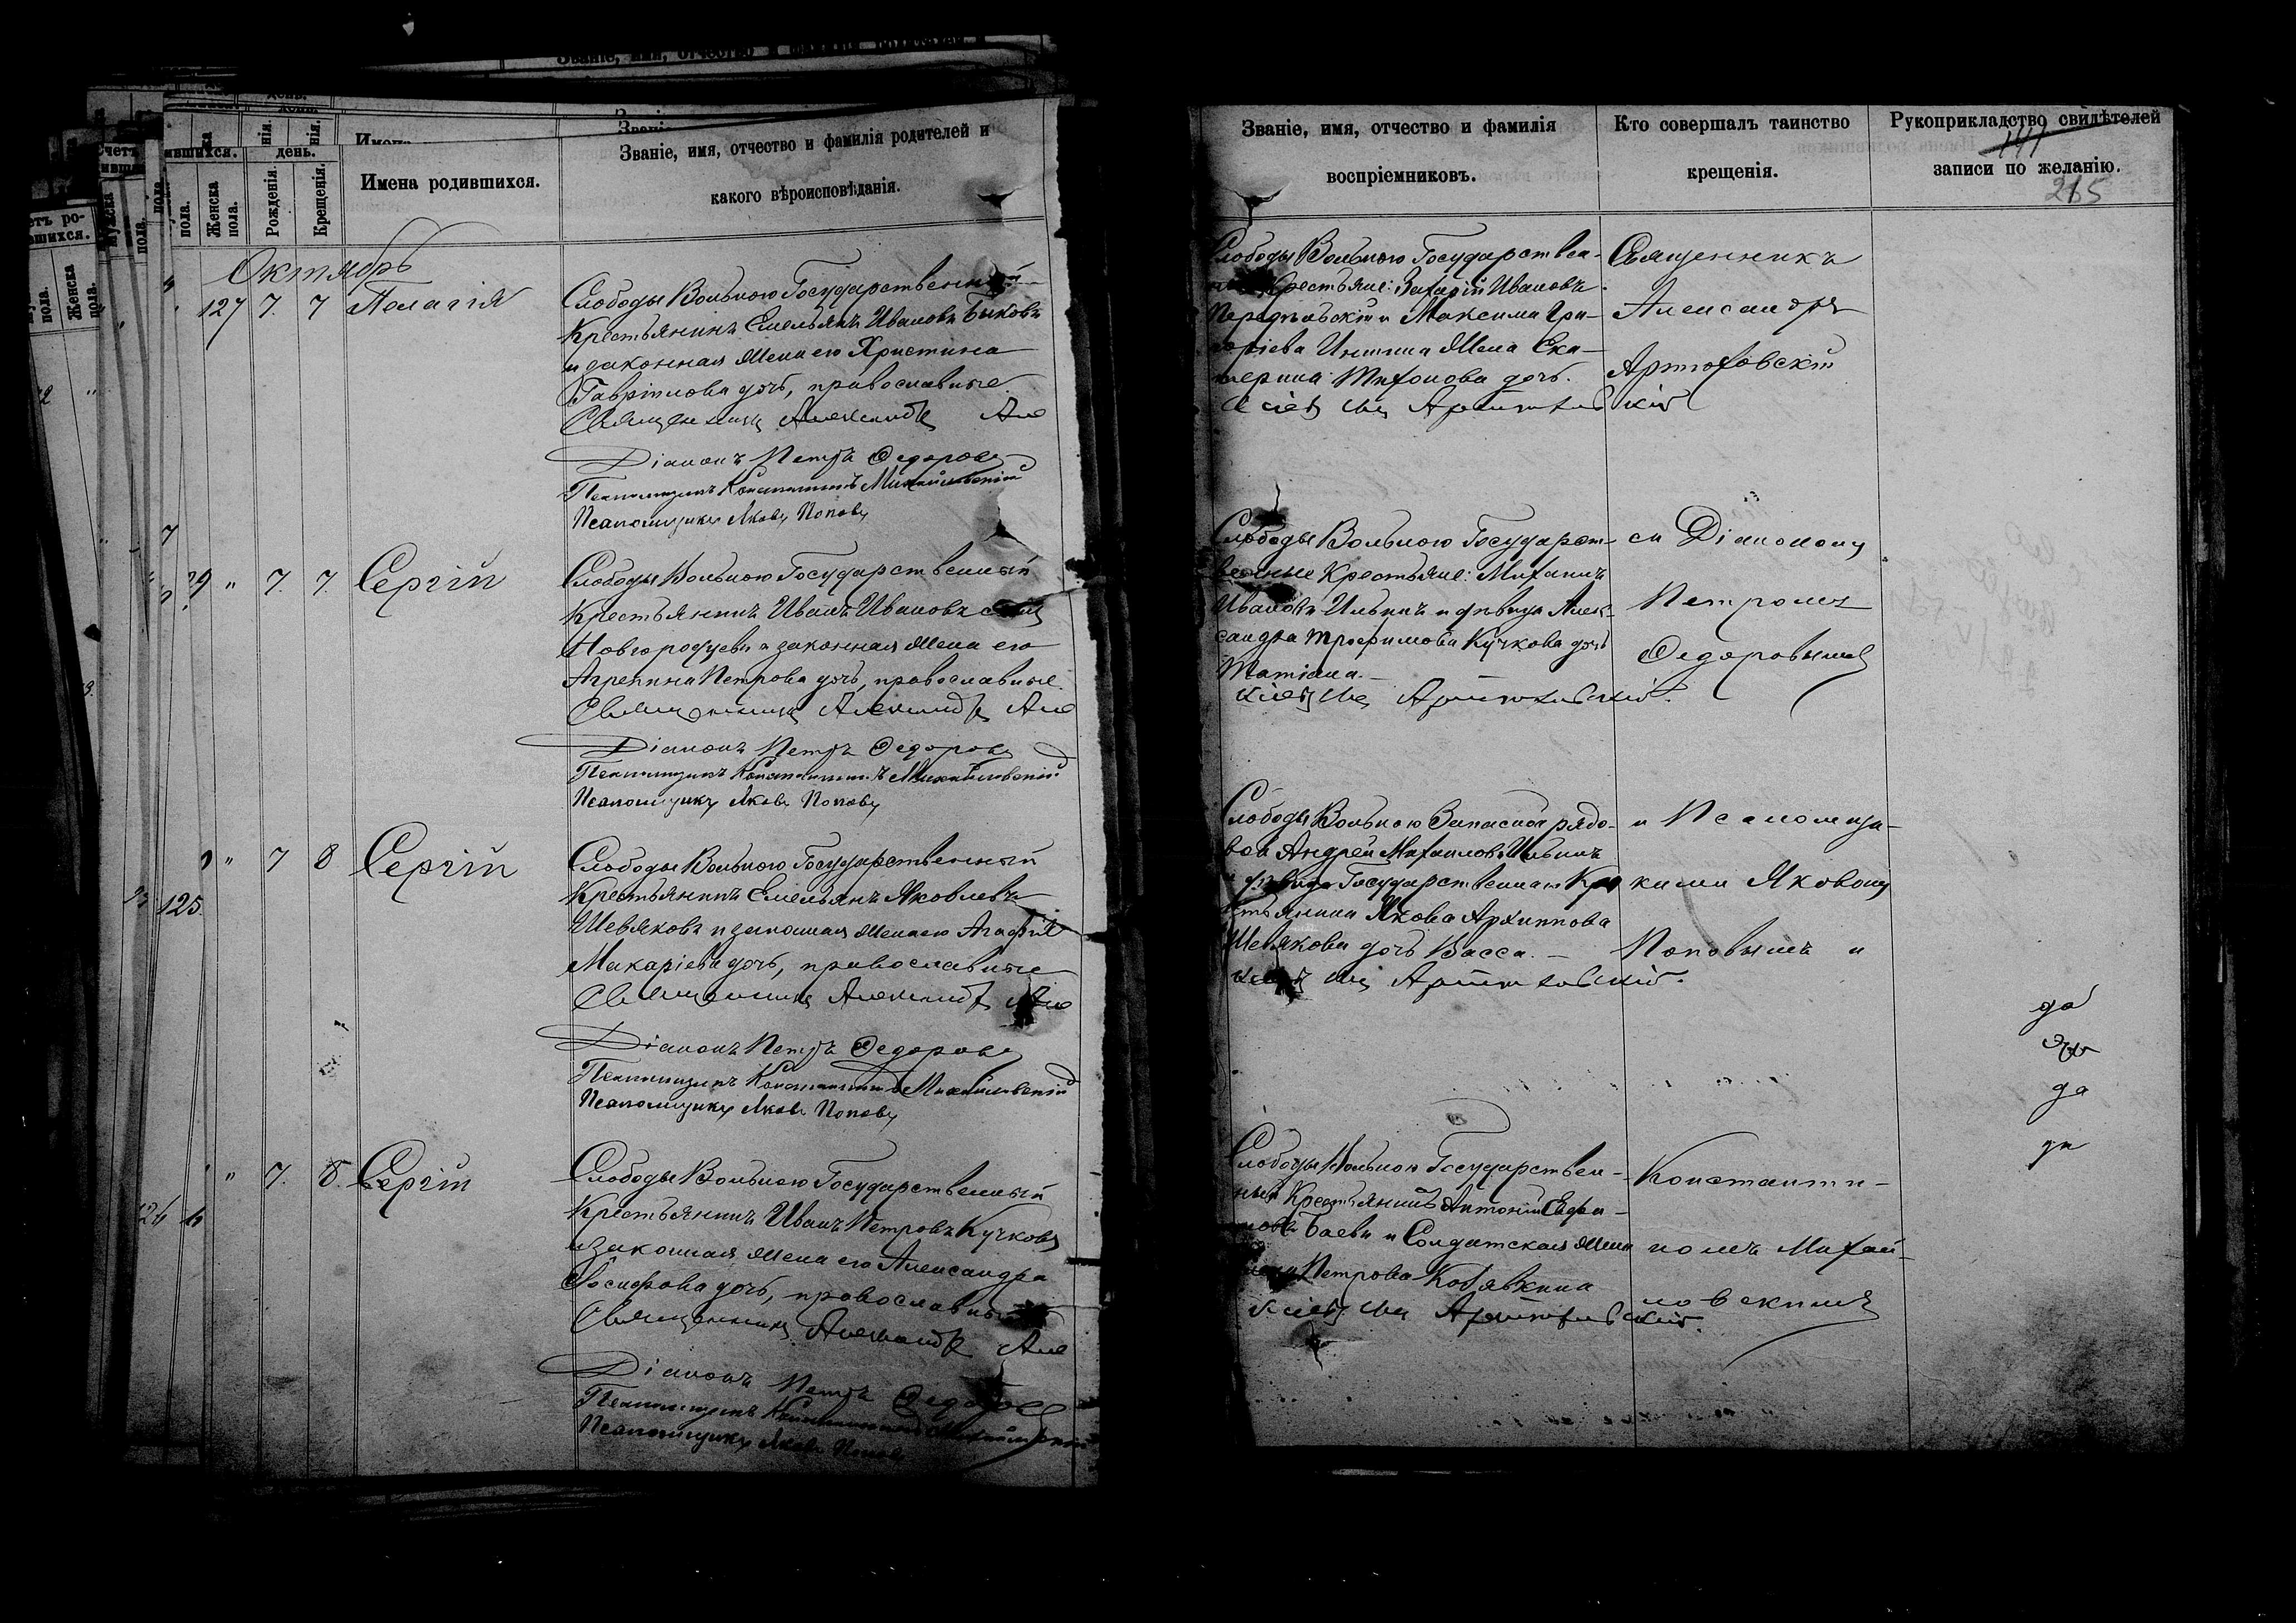 Званіе, имя, отчество и фамилія родителей и
какого вѣроисповѣданія.
Имена родившихся.
день.
Рожденія.
Крещенія.
Женска пола.
Октябрь
127 7. 7 Пелагія
Слободы Вольного Государственный
Крестьянинъ Емельянъ Ивановъ Быковъ
и законная жена его Христина
Гавріилова дочь, православные.
Священникъ Александръ Але
Діаконъ Петръ Федоровъ
Псаломщикъ Константинъ Михайловскій
Псаломщикъ Яковъ Поповъ
" 7. 7. Сергій
Слободы Вольного Государственный
Крестьянинъ Иванъ Ивановъ
Новгородцевъ и законная жена его
Агрепина Петрова дочь, православные.
Священникъ Александръ Але
Діаконъ Петръ Федоровъ
Псаломщикъ Константинъ Михайловскій
Псаломщикъ Яковъ Поповъ
125. " 7 8 Сергій
Слободы Вольного Государственный
Крестьянинъ Емельянъ Яковлевъ
Шевяковъ и законная жена его Агафія
Макаріева дочь, православные
Священникъ Александръ Але
Діаконъ Петръ Федоровъ
Псаломщикъ Константинъ Михайловскій
Псаломщикъ Яковъ Поповъ
" 7. 8. Сергій
Слободы Вольного Государственный
Крестьянинъ Иванъ Петровъ Кучковъ
и законная жена его Александра
Іосифова дочь, православные
Священникъ Александръ Але
Діаконъ Петръ Федоровъ
Псаломщикъ Константинъ Михайловскій
Псаломщикъ Яковъ Поповъ
Званіе, имя, отчество и фамилія
воспріемниковъ.
Кто совершалъ таинство
крещенія.
Рукоприкладство свидѣтелей
записи по желанію.
141
215
Слободы Вольного Государствен-
Крестьяне: Захарій Ивановъ
и Максима Гри-
горіева Инютина жена Ека-
терина Тихонова дочь.
ксіевъ сынъ Артюховскій
Священникъ
Александръ
Артюховскій
Слободы Вольного Государст-
венные Крестьяне: Михаилъ
Ивановъ Ильинъ и дѣвица Алек-
сандра Трофимова Кучкова дочь
Татіана.
ксіевъ сынъ Артюховскій.
съ Діакономъ
Петромъ
Федоровымъ
Слободы Вольного Запасной рядо-
вой Андрей Михаиловъ Ильинъ
и дѣвица Государственнаго Кре
стьянина Якова Архиппова
Шевякова дочь Васса.
ксіевъ сынъ Артюховскій.
и Псаломщи-
ками Яковомъ
Поповымъ и
да
да
да
Слободы Вольного Государствен-
ный Крестьянинъ Антоній
Баевъ и Солдатская жена
Петрова Кобякина
ксіевъ сынъ Артюховскій.
Константи-
номъ Михай-
ловскимъ